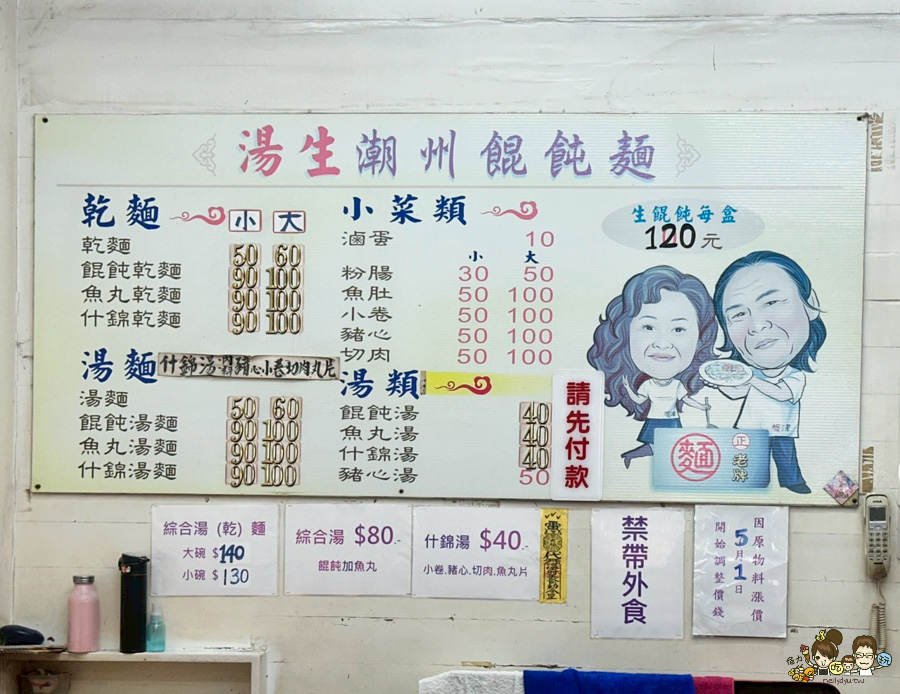 湯生潮州餛飩麵
乾麵 小 大
乾麵 50 60
餛飩乾麵 90 100
魚丸乾麵 90 100
什錦乾麵 90 100
湯麵
湯麵 50 60
餛飩湯麵 90 100
魚丸湯麵 90 100
什錦湯麵 90 100
小菜類
滷蛋 10
小 大
粉腸 30 50
魚肚 50 100
小卷 50 100
豬心 50 100
切肉 50 100
湯類
餛飩湯 40
魚丸湯 40
什錦湯 40
豬心湯 50
請先付款
生餛飩每盒
120元
麵
正老牌
綜合湯(乾)麵
大碗 $140
小碗 $130
綜合湯 $80.-
餛飩加魚丸
什錦湯 $40.-
小卷.豬心.切肉.魚丸片
禁帶外食
因原物料漲價
5月1日
開始調整價錢